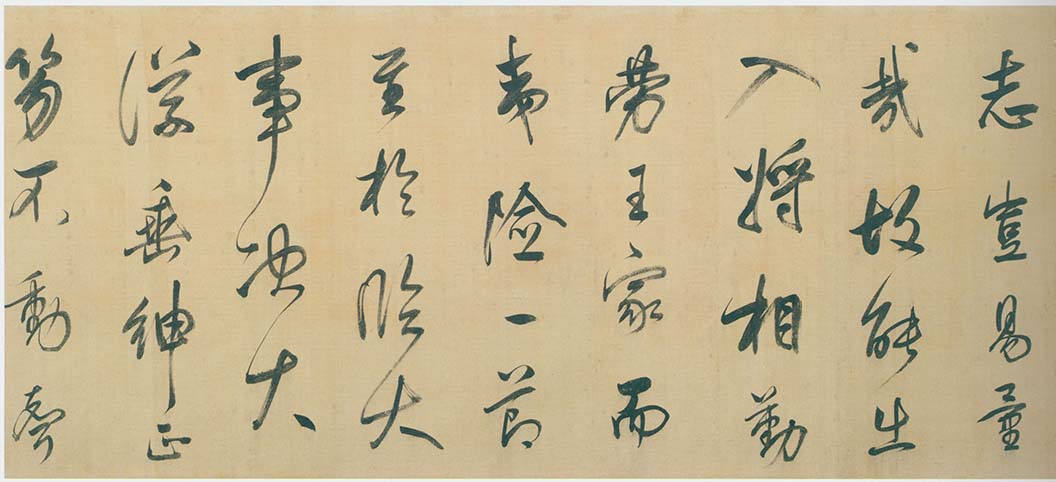 志豈易量
哉故能出
入將相勤
勞王家而
夷險一節
至於臨大
事决大
議垂紳正
笏不動聲